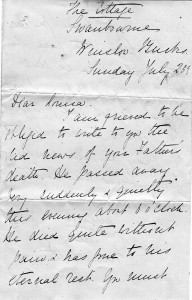 The Cottage
Swanbourne
Winslow Bucks.
Sunday July 23
Dear Louisa.
I am grieved to be
obliged to write to you the
sad news of your Father's
death He passed away
very suddenly & quietly
this evening about 6 o'clock
He died quite without
pain & has gone to his
eternal rest. You must